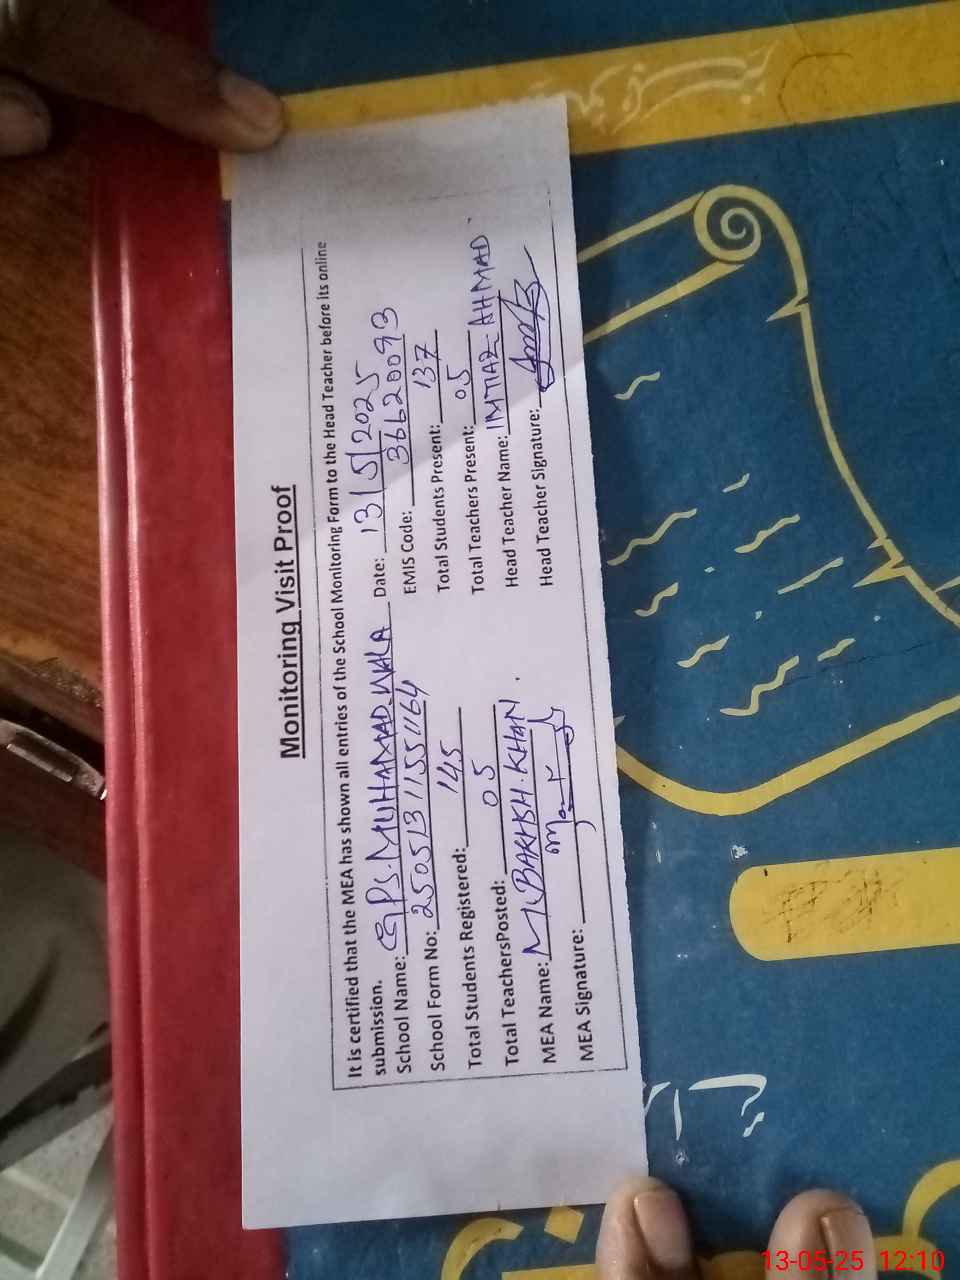 Monitoring Visit Proof
It is certified that the MEA has shown all entries of the School Monitoring Form to the Head Teacher before its online
submission.
School Name: GPS. MUHAMAD WALA Date: 13/5/2025
School Form No: 25051311551164 EMIS Code: 36620093
Total Students Registered: 145 Total Students Present: 137
Total TeachersPosted: 05 Total Teachers Present: 05
MEA Name: M. BAKHSH. KHAN. Head Teacher Name: IMTIAZ AHMAD
MEA Signature: Head Teacher Signature:
13-05-25 12:10